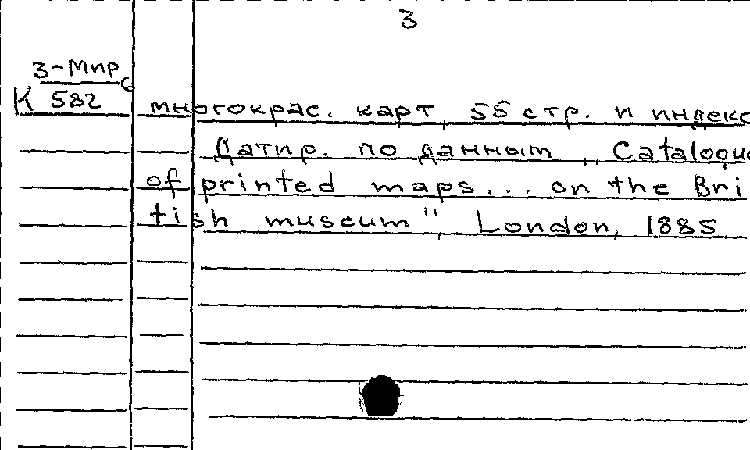 3
3-Мир
К 582
многокрас. карт, 55 стр. и индекс
Датир. по данным „Catalogue
of printed maps... on the Bri
tish museum", London, 1885